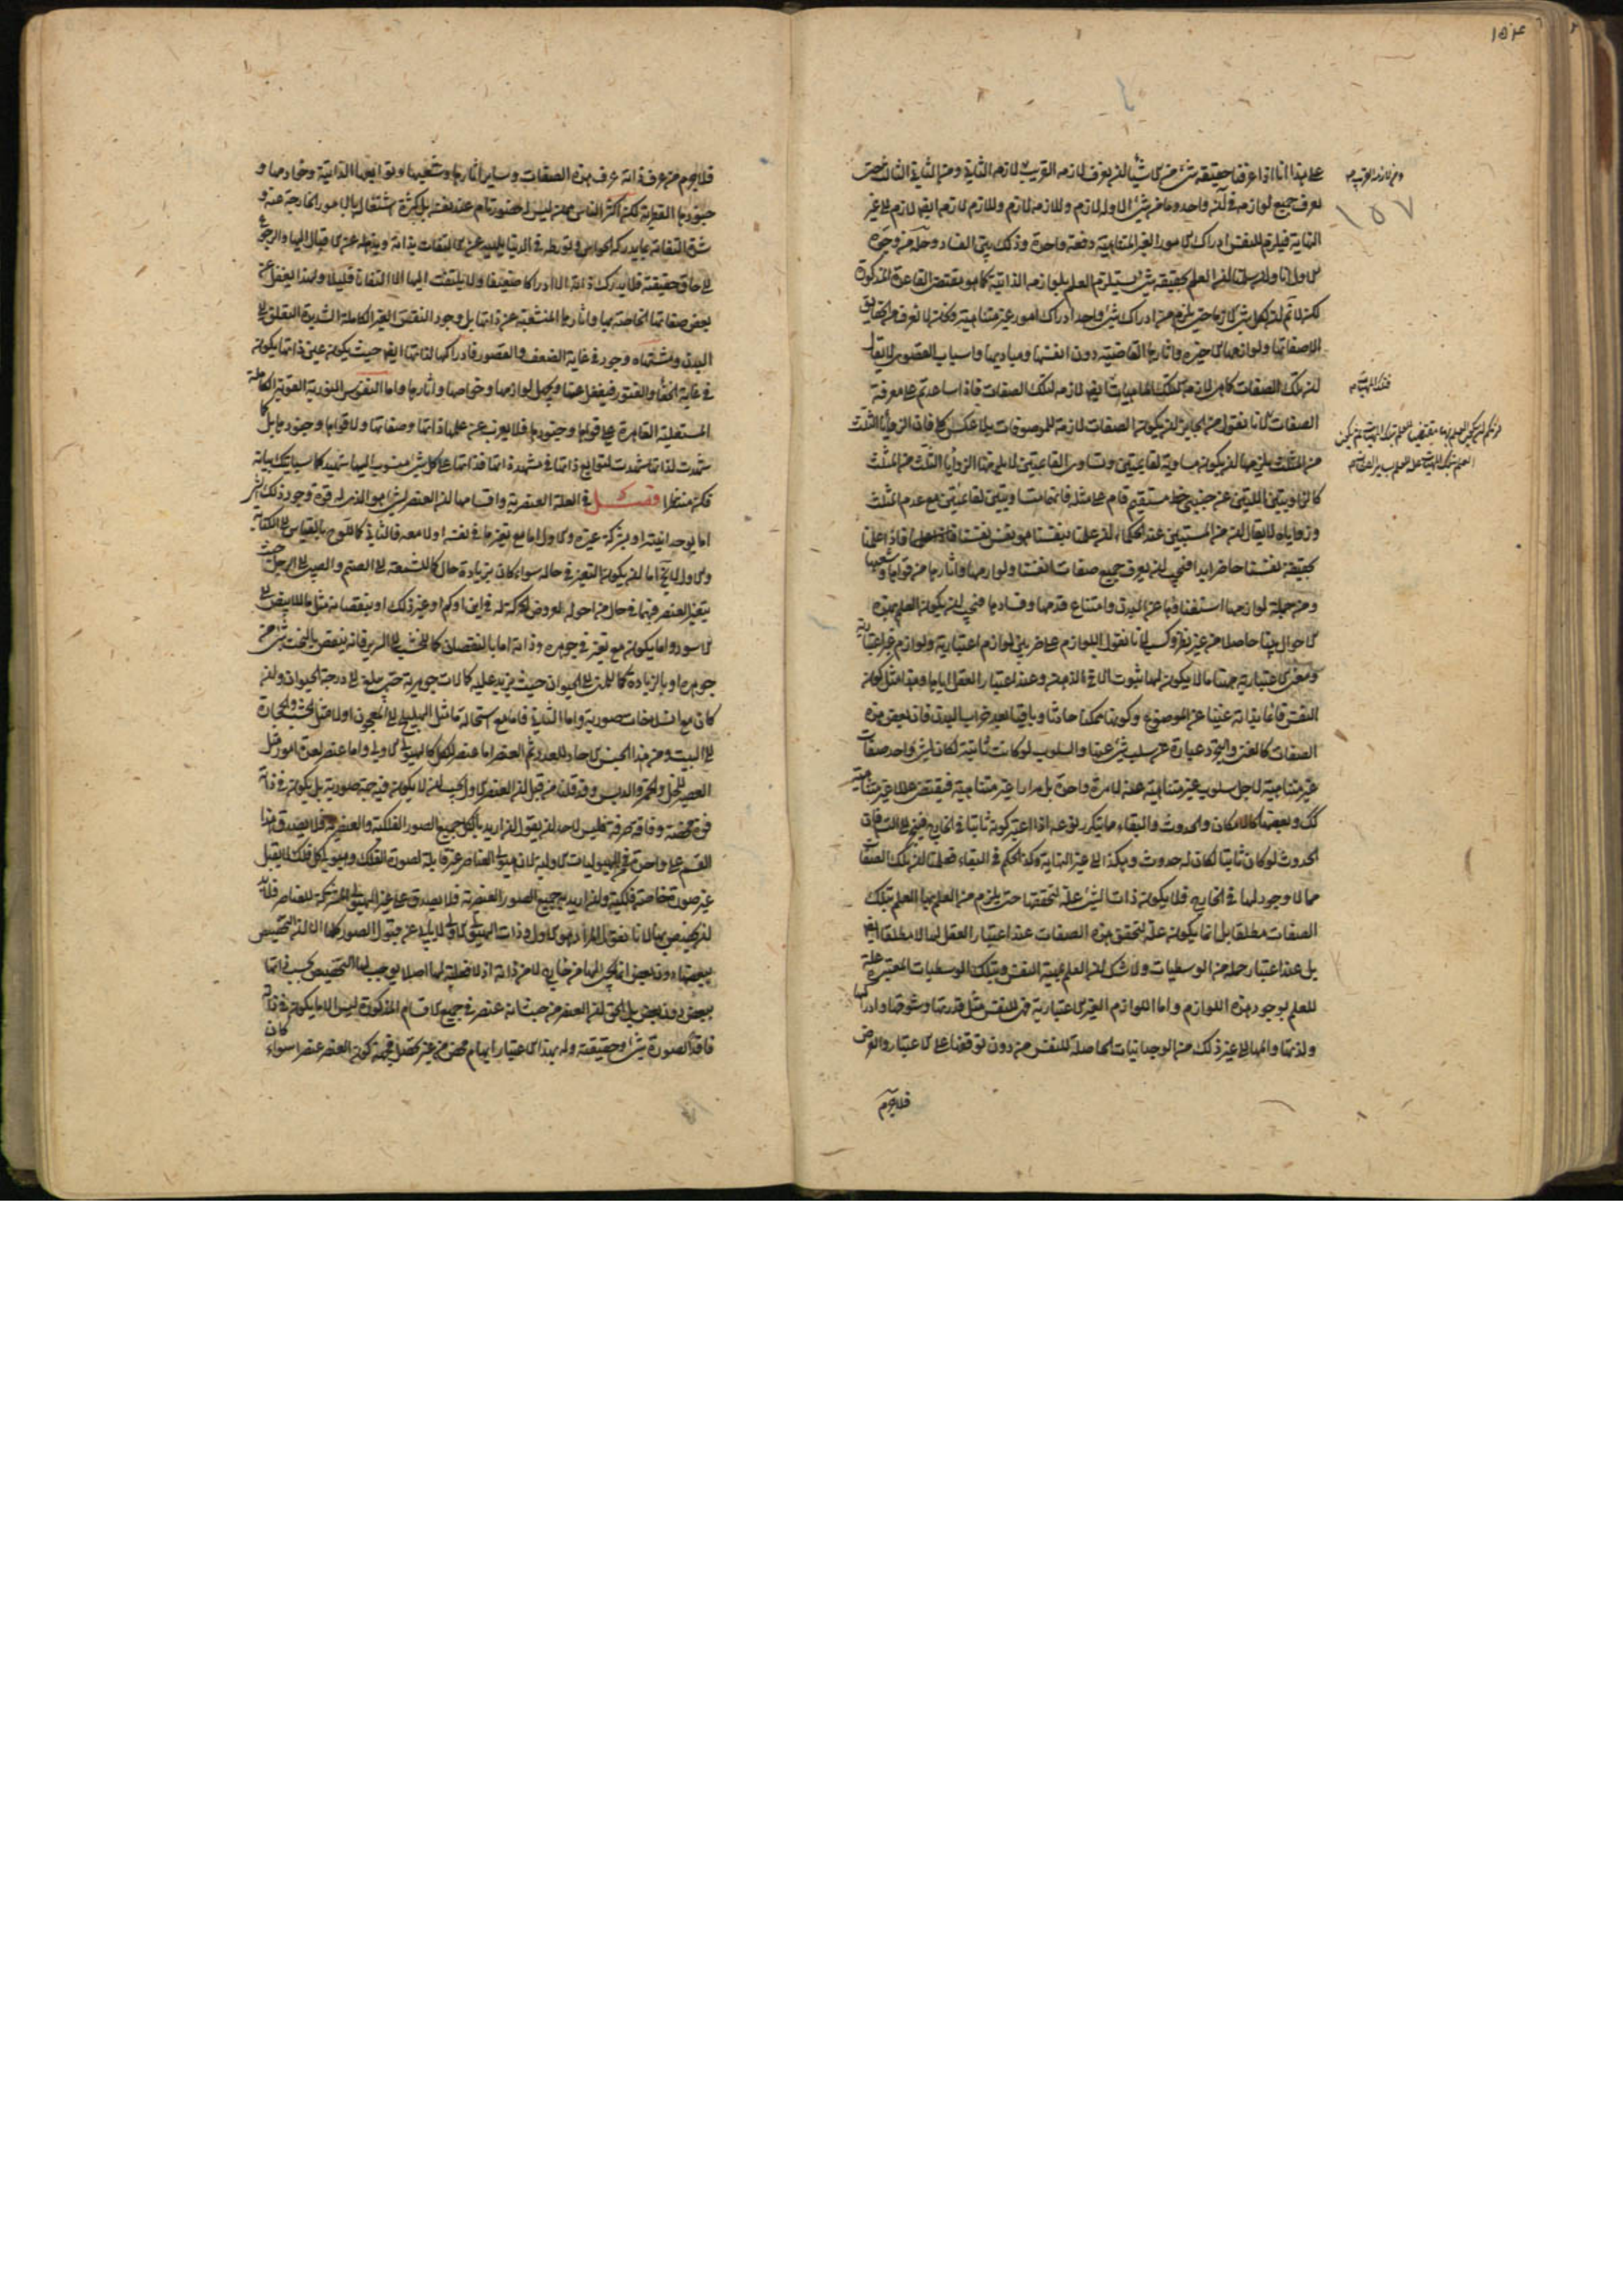 ١٥٤
١٥٧
على هذا انا اذا عرفنا حقيقة شئ من الاشياء لزم ان يعرف لازمه القريب لازمه الثاني ومن الثاني الثالث حتى
يعرف جميع لوازمه في آن واحد وما من شئ الا وله لازم وللازمه لازم وللازم لازمه ايضا لازم الى غير
النهاية فيلزم للنفس ادراك الامور الغير المتناهية دفعة واحدة وذلك بين الفساد
الاول انا وان سلمنا ان العلم بحقيقة شئ يستلزم العلم بلوازمه الذاتية كما هو مقتضى القاعدة المذكورة
لكن لا نم ان لكل شئ لازما حتى يلزم من ادراك شئ واحد ادراك امور غير متناهية
الا صفاتها ولوازمها الاخيرة واثارها القاصية دون انفسها ومباديها واسباب القصوى لا يقال
ان تلك الصفات كما هي لازمة لتلك الماهيات ايضا لازمة لتلك الصفات فاذا ساعدتم على معرفة
الصفات لانا نقول من الجايز ان يكون الصفات لازمة للموصوفات بلا عكس كلي فان الزوايا الثلث
من المثلث يلزمها ان يكون مساوية لقائمتين وتساوي القائمتين لا يلزمها الزوايا الثلث من المثلث
كالزاويتين اللتين عن جنبي خط مستقيم قام على مثله فانهما متساويتين لقائمتين مع عدم المثلث
وزواياه لا يقال ان من المستبين عند الحكماء ان علمنا بنفسنا هو نفس نفسنا فاذا علمنا
بحقيقة نفسنا حاضر ابدا فيجب ان يعرف جميع صفات انفسنا ولوازمها واثارها من قواها وشعبها
ومن جملة لوازمها استغناؤها عن البدن وامتناع قدمها وفسادها فيجب ان يكون العلم بهذه
الاحوال بينا حاصلا من غير نظر وكسب لانا نقول اللوازم على ضربين لوازم اعتبارية ولوازم غير اعتبارية
ومعنى الاعتبارية ههنا ما لا يكون لها ثبوت الا في الذهن وعند اعتبار العقل اياها وهذا مثل كون
النفس قائما بذاته غنيا عن الموضوع وكونها ممكنا حادثا وباقيا بعد خراب البدن فان بعض هذه
الصفات كالغنى والتجرد عبارة عن سلب شئ عنها والسلوب لو كانت ثابتة لكان لشئ واحد صفات
غير متناهية لاجل سلوب غير متناهية عنه لا مرة واحدة بل مرارا غير متناهية فيقتضي عللا غير متناهية
كك وبعضها كالامكان والحدوث والبقاء مما يتكرر نوعه اذا اعتبر كونه ثابتا في الخارج فينجر الى التس فان
الحدوث لو كان ثابتا لكان له حدوث وهكذا الى غير النهاية وكذا الحكم في البقاء فعلمنا ان تلك الصفات
مما لا وجود لها في الخارج فلا يكون ذات الشئ علة لتحققها حتى يلزم من العلم بها العلم بتلك
الصفات مطلقا بل انما يكون علة لتحقق هذه الصفات عند اعتبار العقل لها لا مطلقا ايضا
بل عند اعتبار جملة من الوسطيات ولا شك ان العلم بهيئة النفس وبتلك الوسطيات المعتبرة علة
للعلم بوجود هذه اللوازم واما اللوازم الغير الاعتبارية فهي للنفس مثل قدرتها وشوقها وادراكها
ولذتها والمها الى غير ذلك من الوجدانيات الحاصلة للنفس من دون توقفها على الاعتبار والفرض
فلا جرم
فلا جرم من عرف ذاته عرف هذه الصفات وساير اثارها وشعبها وتوابعها الذاتية وخوادمها و
جنودها الفطرية لكن اكثر الناس ممن ليس له حضور تام عند نفسه بل كثرة اشتغاله بالامور الخارجة عنه و
شدة التفاته بما يدركه الحواس وتورطه في الدنيا يلهيه عن الالتفات بذاته ويذهله عن الاقبال اليها والرجوع
الى حاق حقيقته فلا يدرك ذاته الا ادراكا ضعيفا ولا يلتفت اليها الا التفاتا قليلا ولهذا يغفل عن
بعض صفاتها الخاصة بها واثارها المنشعبة عن ذاتها بل وجود النفس الغير الكاملة الشديدة التعلق الى
البدن ومشتهاه وجود في غاية الضعف والقصور فادراكها لذاتها ايضا حيث يكون عين ذاتها يكون
في غاية الخفاء والفتور فيغفل عنها ويجهل لوازمها وخواصها واثارها واما النفوس النورية القوية الكاملة
المستعلية القاهرة على قواها وجنودها فلا يعزب عن علمها ذاتها وصفاتها ولا قواها وجنودها بل كما
شهدت ذاتها شهدت لتوابع ذاتها في مشهد ذاتها فذاتها على كل شئ منسوب اليها شهيد كما سيأتيك بيانه
فكن منتظرا فصل في العلة العنصرية واقسامها ان العنصر لشئ هو الذي له قوة وجود ذلك الشئ
اما بوحدانيته او بشركة غيره والاول اما مع تغير ما في نفسه اولا معه فالثاني كاللوح بالقياس الى الكتابة
والاول لا يخ اما ان يكون التغير في حاله سواء كان بزيادة حال كالشمعة الى الصنم والصبي الى الرجل حيث
يتغير العنصر فيهما في حال من احواله لعروض الحركة له في اين او كم او غير ذلك او بنقصانه مثل الابيض الى
الاسود واما يكون مع تغير في جوهره وذاته اما بالنقصان كالخشب الى السرير فانه ينقص بالنحت شئ من
جوهره او بالزيادة كالمني الى الحيوان حيث يزيد عليه كمالات جوهرية حتى يبلغ الى درجة الحيوان وان
كان مع انسلاخات صورية واما الثاني فاما مع استحالة ما مثل الهليلج الى المعجون اولا مثل الخشب والحجارة
الى البيت ومن هذا الجنس الاحاد للعدد ثم العنصر اما عنصر للكل كالهيولى الاولى واما عنصر لعدة امور مثل
العصير للخل والخمر والدبس وقد قلنا من قبل ان العنصر الاول يجب ان لا يكون فيه جهة صورية بل يكون في ذاته
قوة محضة وفاقة صرفة فليس لاحد ان يقول ان اريد بالكل جميع الصور الفلكية والعنصرية فلا يصدق هذا
القسم على واحدة من الهيوليات الاولية لان هيولى العناصر غير قابلة لصورة الفلك وهيولى كل فلك لا يقبل
غير صورة خاصة فلكية وان اريد جميع الصور العنصرية فلا يصدق على غير الهيولى المشتركة للعناصر
لانا نقول المراد هو الاول وذات الهيولى الاولى لا يأبى عن قبول الصور كلها الا ان التخصيص
ببعضها دون بعض انما يجئ اليها من خارج لا من ذاته اذ لا فعلية لها اصلا يوجب لها التخصيص بحسب ذاتها
ببعض دون بعض بل الحق ان العنصر من حيث انه عنصر في جميع الاقسام المذكورة ليس الا ما يكون في ذاته
فاقد الصورة شئ وحقيقته وله بهذا الاعتبار ابهام محض من غير تحصل فجهة كون العنصر عنصرا سواء كان